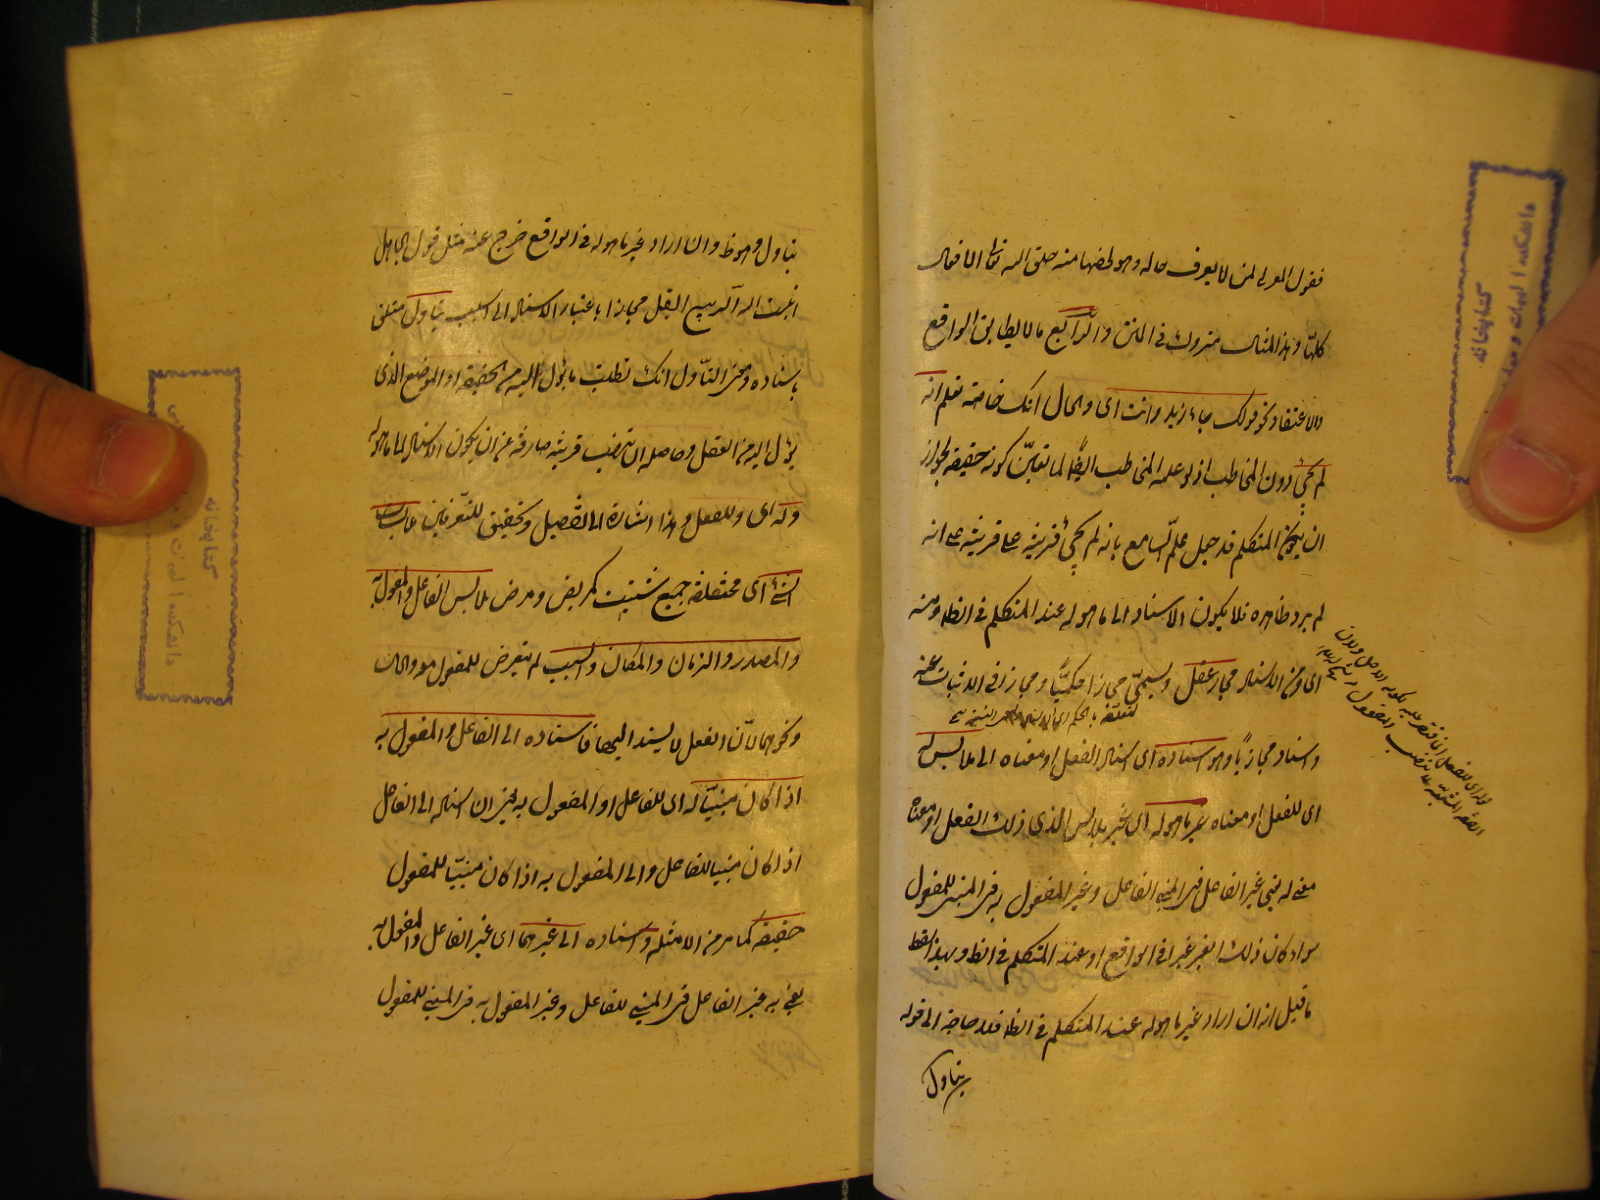 كقول المعتزلى لمن لا يعرف حاله وهو يخفيها منه خلق الله تعالى الافعال
كلها وهذا المثال متروك فى المتن والرابع ما لا يطابق الواقع
والاعتقاد نحو قولك جاء زيد وانت اى والحال انك خاصة تعلم انه
لم يجئ دون المخاطب اذ لو علمه المخاطب ايضا لما تعين كونه حقيقة لجواز
ان يكون المتكلم قد جعل علم السامع بانه لم يجئ قرينة على انه
لم يرد ظاهره فلا يكون الاسناد الى ما هو له عند المتكلم فى الظاهر ومنه
اى ومن الاسناد مجاز عقلى ويسمى مجازا حكميا ومجازا فى الاثبات
واسنادا مجازيا وهو اسناده اى اسناد الفعل او معناه الى ملابس له
اى للفعل او معناه غير ما هو له اى غير الملابس الذى ذلك الفعل او معناه
يعنى غير الفاعل فى المبنى للفاعل وغير المفعول به فى المبنى للمفعول
سواء كان ذلك الغير غيرا فى الواقع او عند المتكلم فى الظ وبهذا سقط
ما قيل انه ان اراد غير ما هو له عند المتكلم فى الظاهر فلا حاجة الى قوله
بتاول
بتاول وهو ظ وان اراد غير ما هو له فى الواقع خرج عنه مثل قول الجاهل
انبت الله البقل مجازا باعتبار الاسناد الى السبب بتاول متعلق
باسناده ومعنى التأول انك تطلب ما يؤل اليه من الحقيقة او الموضع الذى
يؤل اليه من العقل وحاصله ان تنصب قرينة صارفة عن ان يكون الاسناد الى ما هو له
وله اى وللفعل وهذا اشارة الى تفصيل وتحقيق للتعريفين ملابسات
شتى اى مختلفة جمع شتيت كمريض ومرضى يلابس الفاعل والمفعول به
والمصدر والزمان والمكان والسبب لم يتعرض للمفعول معه والحال
ونحوهما لان الفعل لا يسند اليها فاسناده الى الفاعل والمفعول به
اذا كان مبنيا له اى للفاعل او المفعول به يعنى ان اسناده الى الفاعل
اذا كان مبنيا للفاعل والى المفعول به اذا كان مبنيا للمفعول
حقيقة كما مر من الامثلة واسناده الى غيرهما اى غير الفاعل والمفعول به
يعنى به غير الفاعل فى المبنى للفاعل وغير المفعول به فى المبنى للمفعول
كتابخانه
دانشكده الهيات و معارف